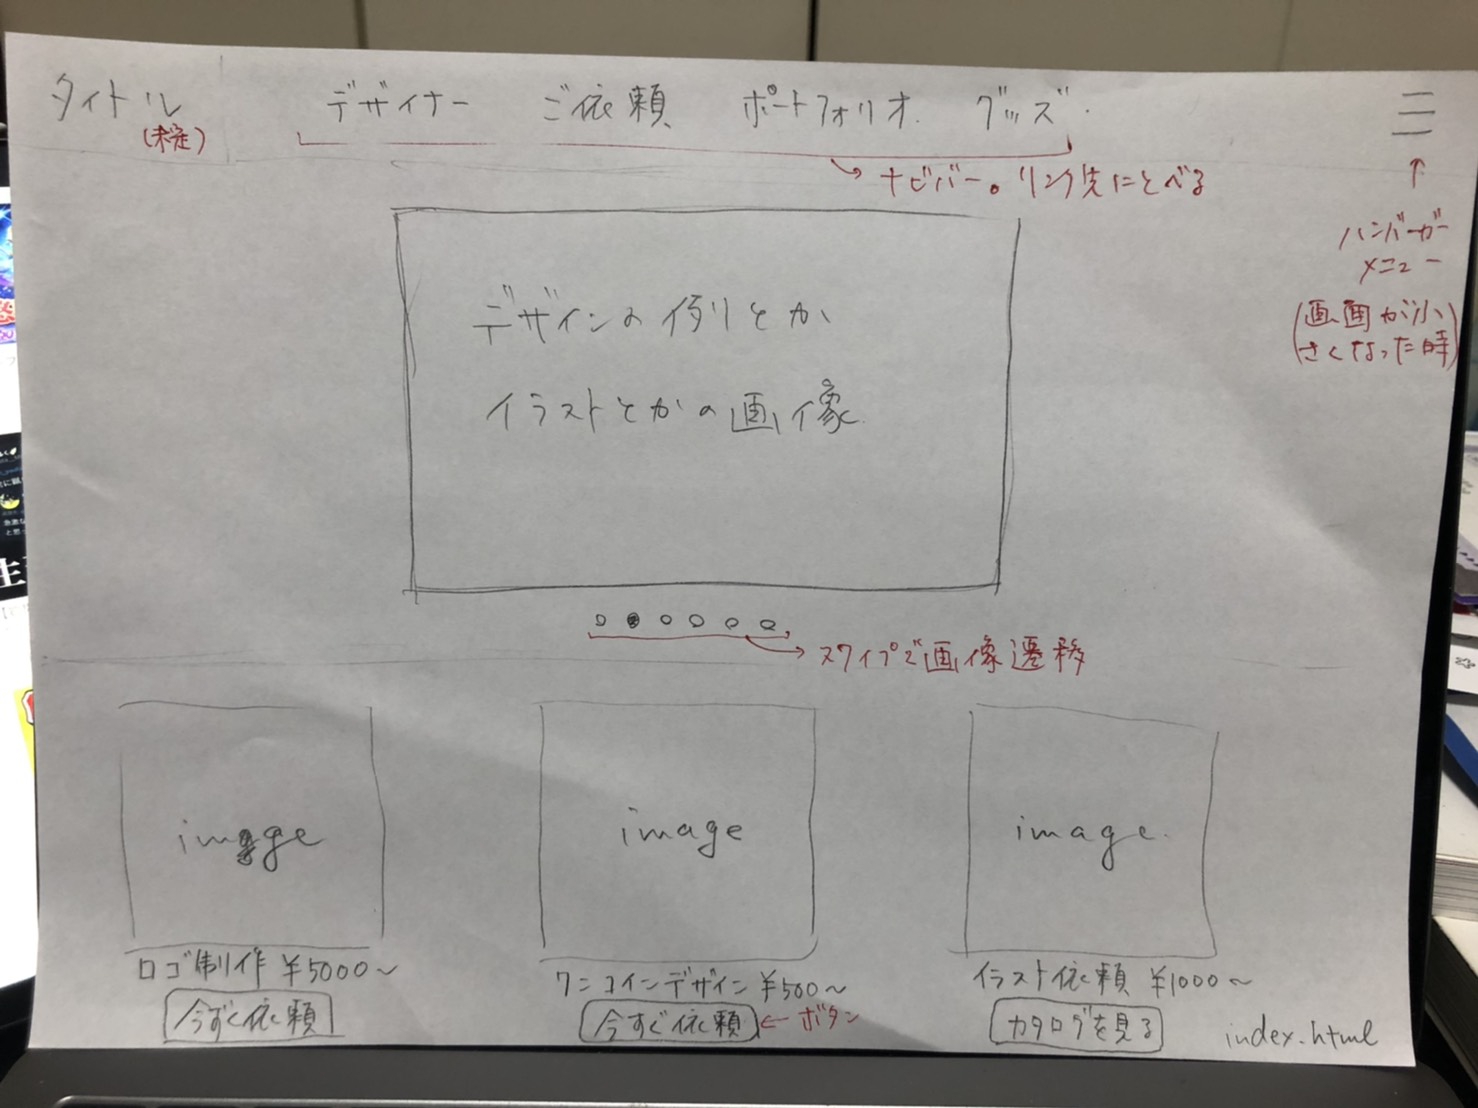 タイトル
(未定)
デザイナー ご依頼 ポートフォリオ グッズ
ナビバー。リンク先にとべる
ハンバーガー
メニュー
(画面が小
さくなった時)
デザインの例とか
イラストとかの画像
スワイプで画像遷移
image
image
image
ロゴ制作 ¥5000~
今すぐ依頼
ワンコインデザイン ¥500~
今すぐ依頼
ボタン
イラスト依頼 ¥1000~
カタログを見る
index.html